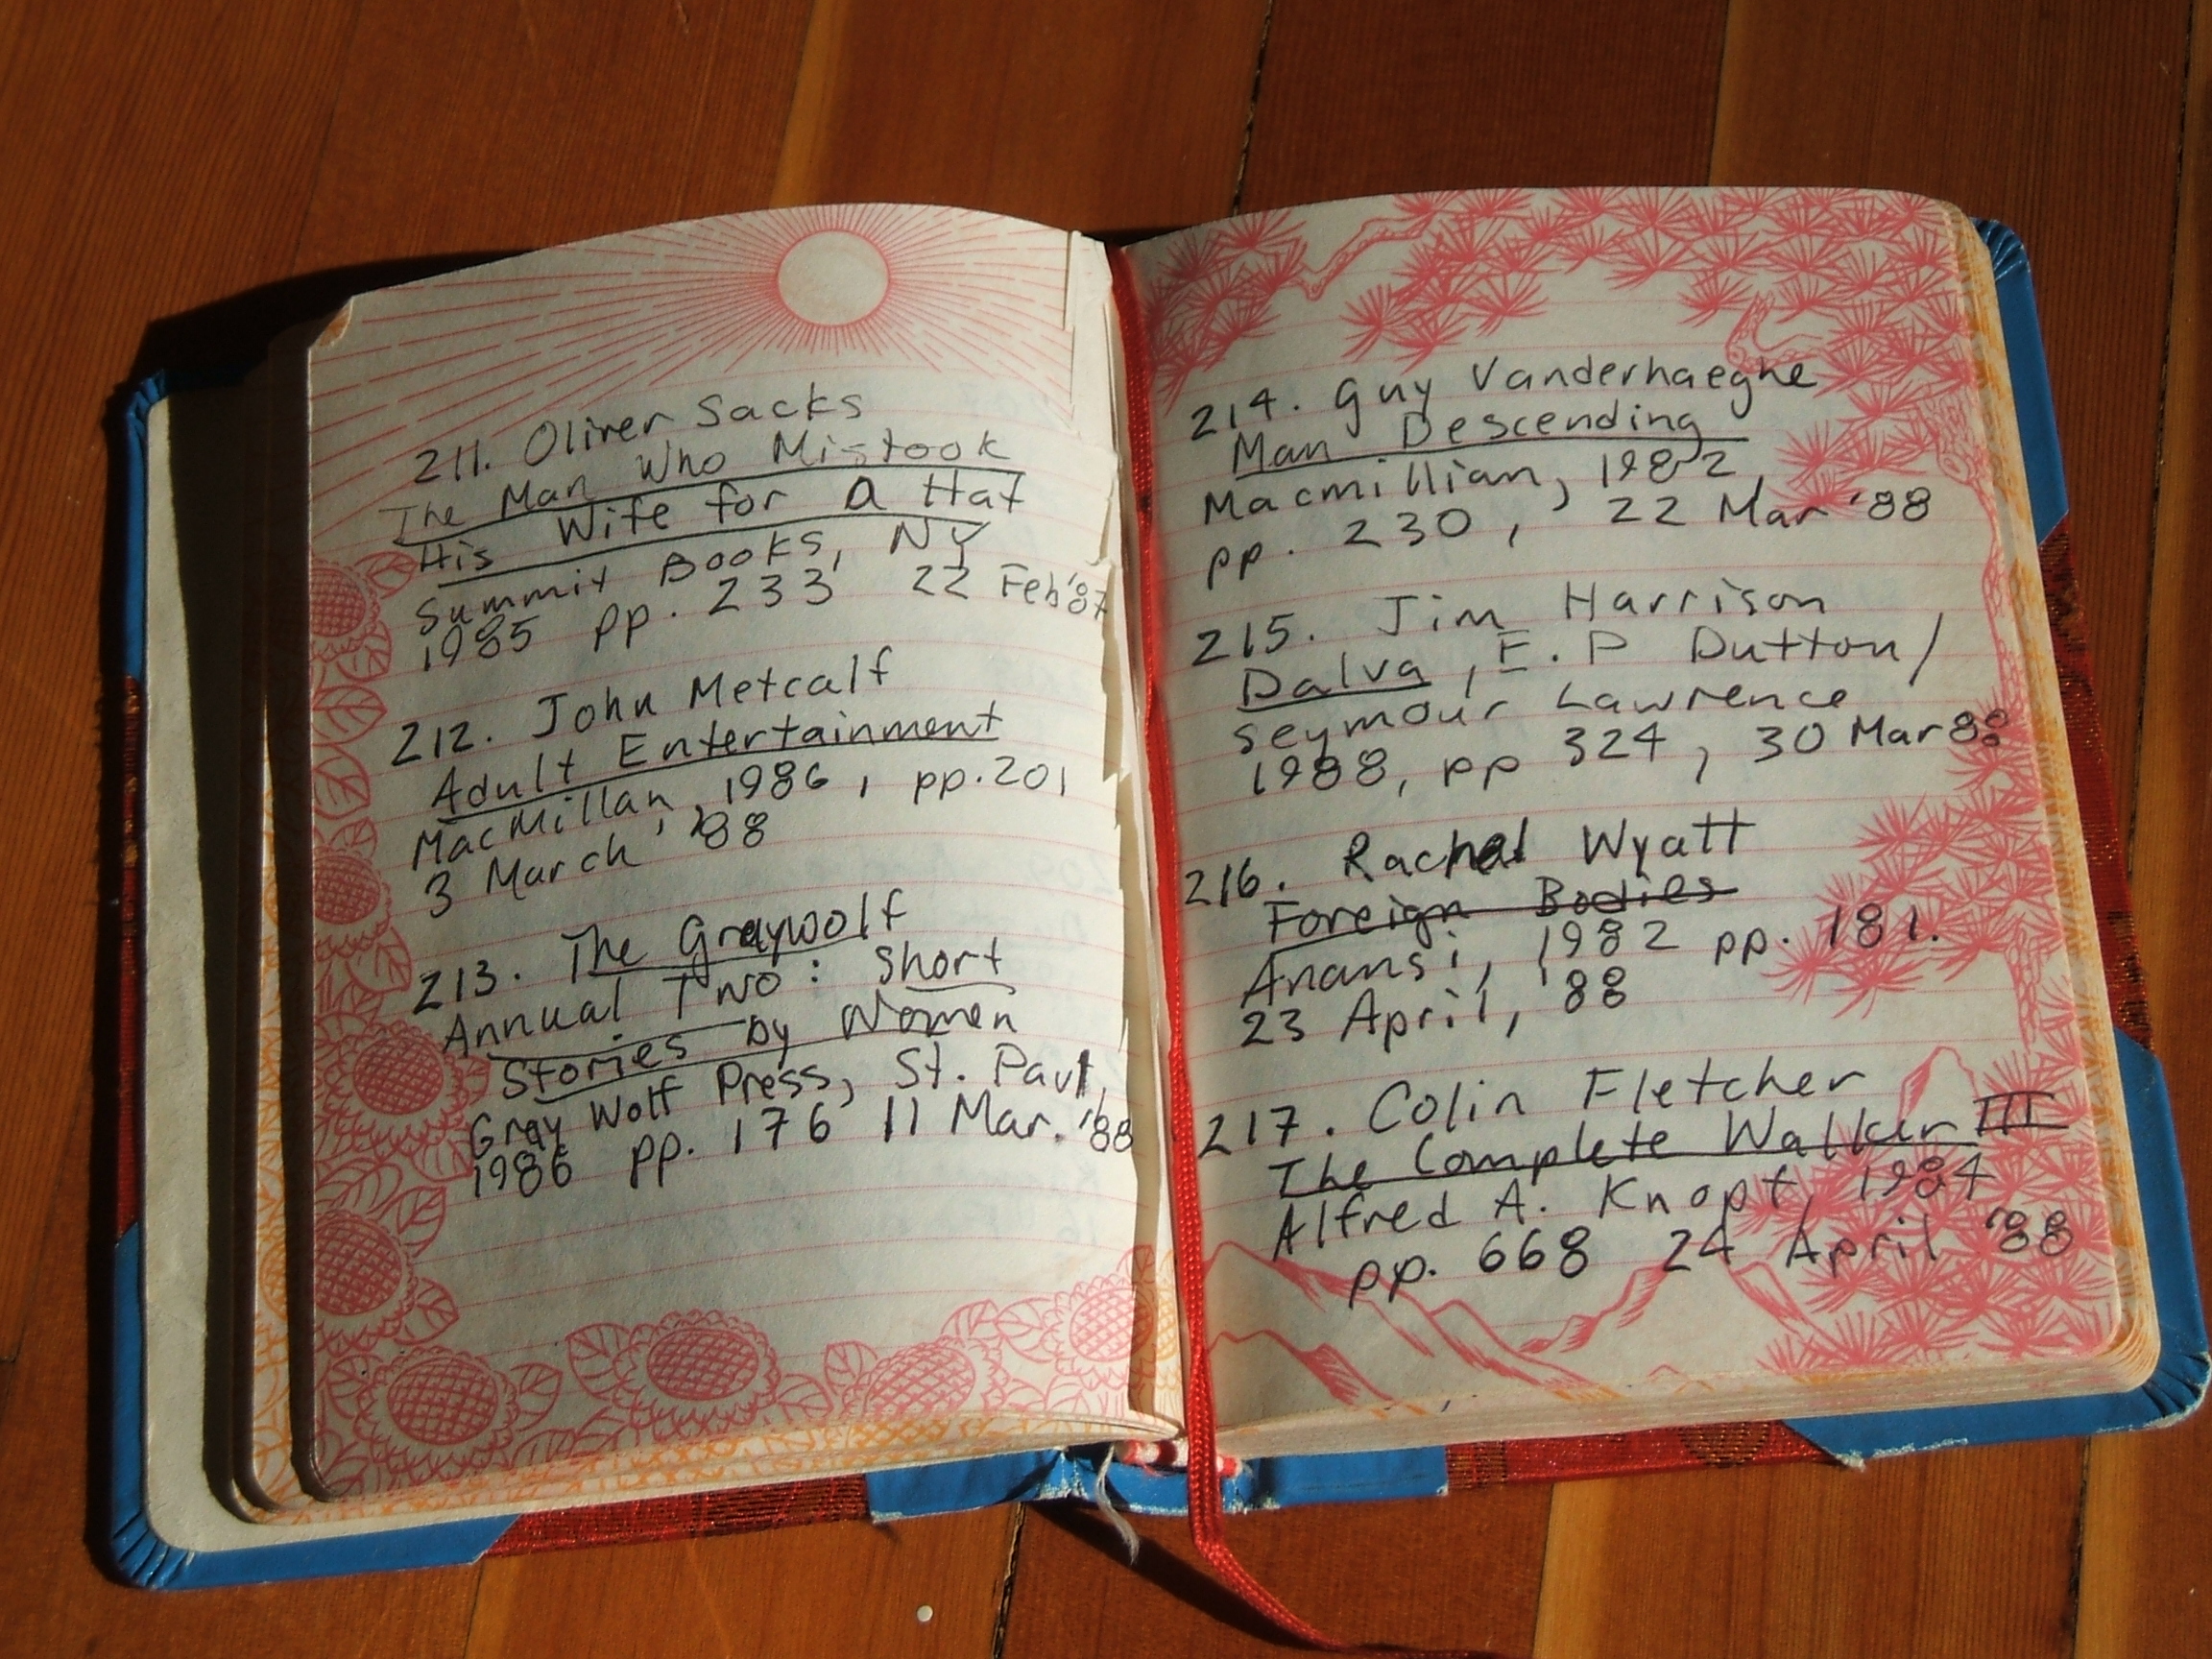 211. Oliver Sacks
The Man Who Mistook
His Wife for a Hat
Summit Books, NY
1985 pp. 233 22 Feb '87
212. John Metcalf
Adult Entertainment
MacMillan, 1986, pp. 201
3 March, '88
213. The Graywolf
Annual Two: Short
Stories by Women
Gray Wolf Press, St. Paul,
1986 pp. 176 11 Mar. '88
214. Guy Vanderhaeghe
Man Descending
Macmillian, 1982,
pp. 230, 22 Mar '88
215. Jim Harrison
Dalva, E.P Dutton/
Seymour Lawrence
1988, pp 324, 30 Mar 88
216. Rachel Wyatt
Foreign Bodies
Anansi, 1982 pp. 181.
23 April, '88
217. Colin Fletcher
The Complete Walker III
Alfred A. Knopf, 1984
pp. 668 24 April '88